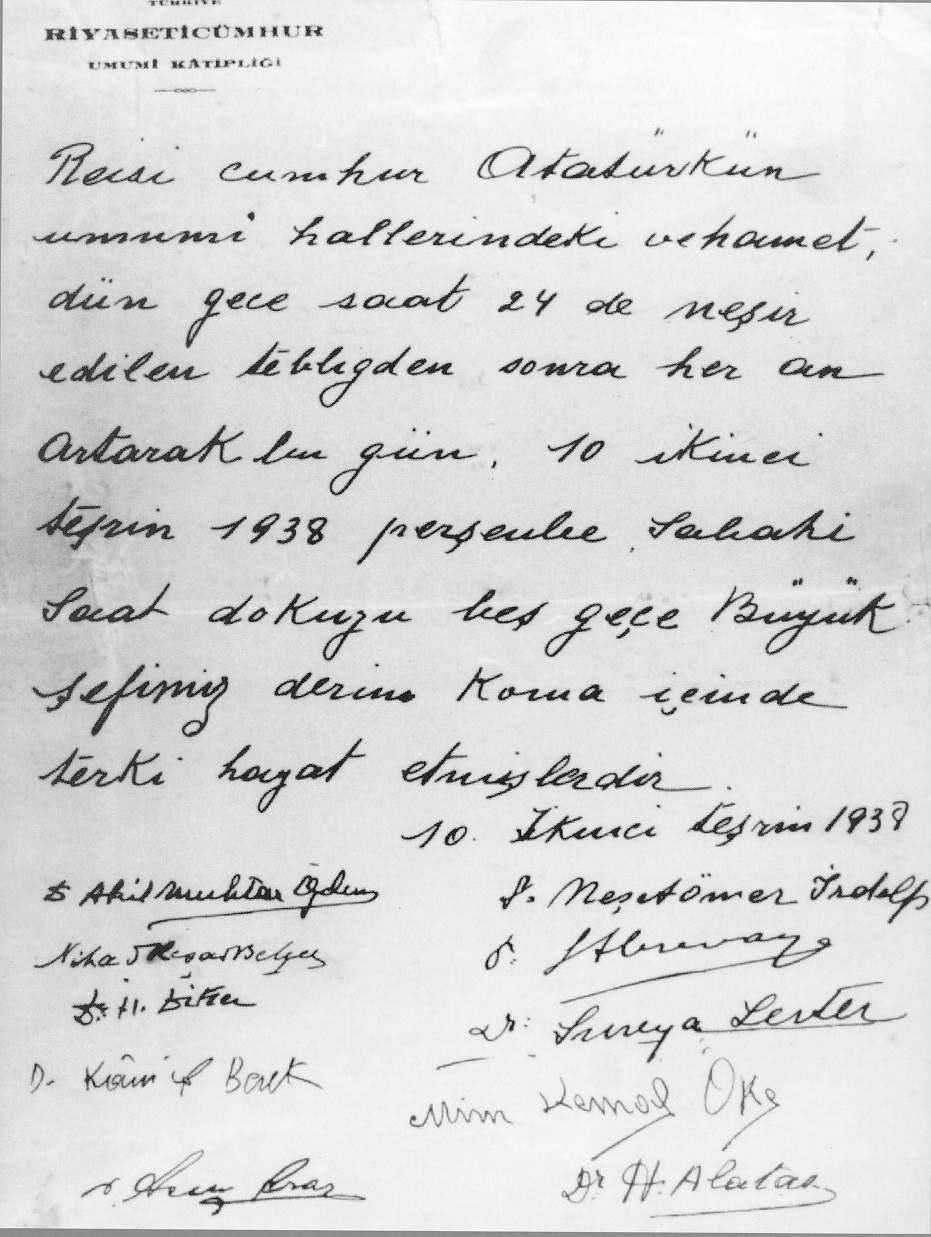 TÜRKİYE
RİYASETİCÜMHUR
UMUMİ KÂTİPLİĞİ
Reisi cumhur Atatürkün
umumi hallerindeki vehamet,
dün gece saat 24 de neşir
edilen tebligden sonra her an
artarak bu gün, 10 ikinci
teşrin 1938 perşenbe sabahi
saat dokuzu beş geçe Büyük
şefimiz derin koma içinde
terki hayat etmişlerdir.
10. İkinci teşrin 1938
Dr Akil Muhtar Özden
D. Neşet Ömer İrdelp
Nihad Reşad Belger
Dr. H. Diker
Dr: Sureya Serter
D. Kâmil Berk
Mim Kemal Öke
Dr H. Alataş